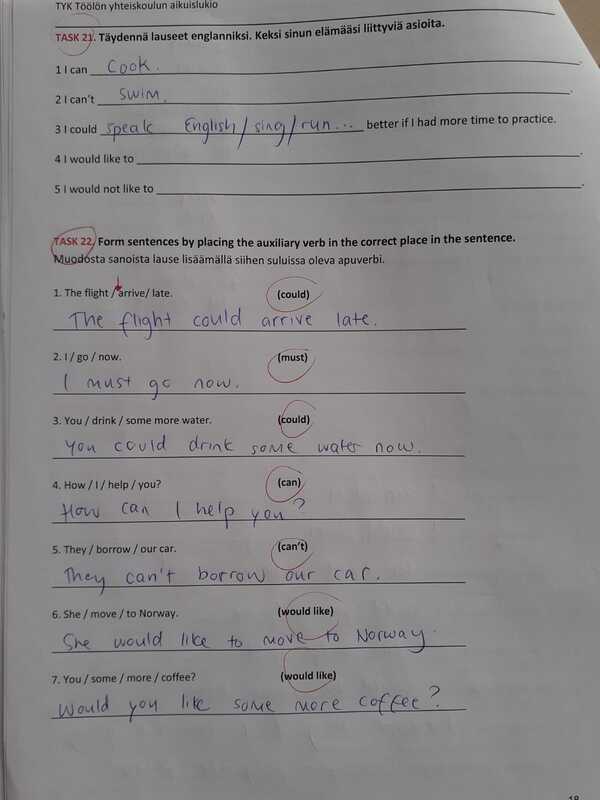 TYK Töölön yhteiskoulun aikuislukio
TASK 21. Täydennä lauseet englanniksi. Keksi sinun elämääsi liittyviä asioita.
1 I can cook.
2 I can't swim.
3 I could speak English/sing/run... better if I had more time to practice.
4 I would like to
5 I would not like to
TASK 22. Form sentences by placing the auxiliary verb in the correct place in the sentence.
Muodosta sanoista lause lisäämällä siihen suluissa oleva apuverbi.
1. The flight / arrive/ late. (could)
The flight could arrive late.
2. I / go / now. (must)
I must go now.
3. You / drink / some more water. (could)
You could drink some water now.
4. How / I / help / you? (can)
How can I help you?
5. They / borrow / our car. (can't)
They can't borrow our car.
6. She / move / to Norway. (would like)
She would like to move to Norway.
7. You / some / more / coffee? (would like)
Would you like some more coffee?
18